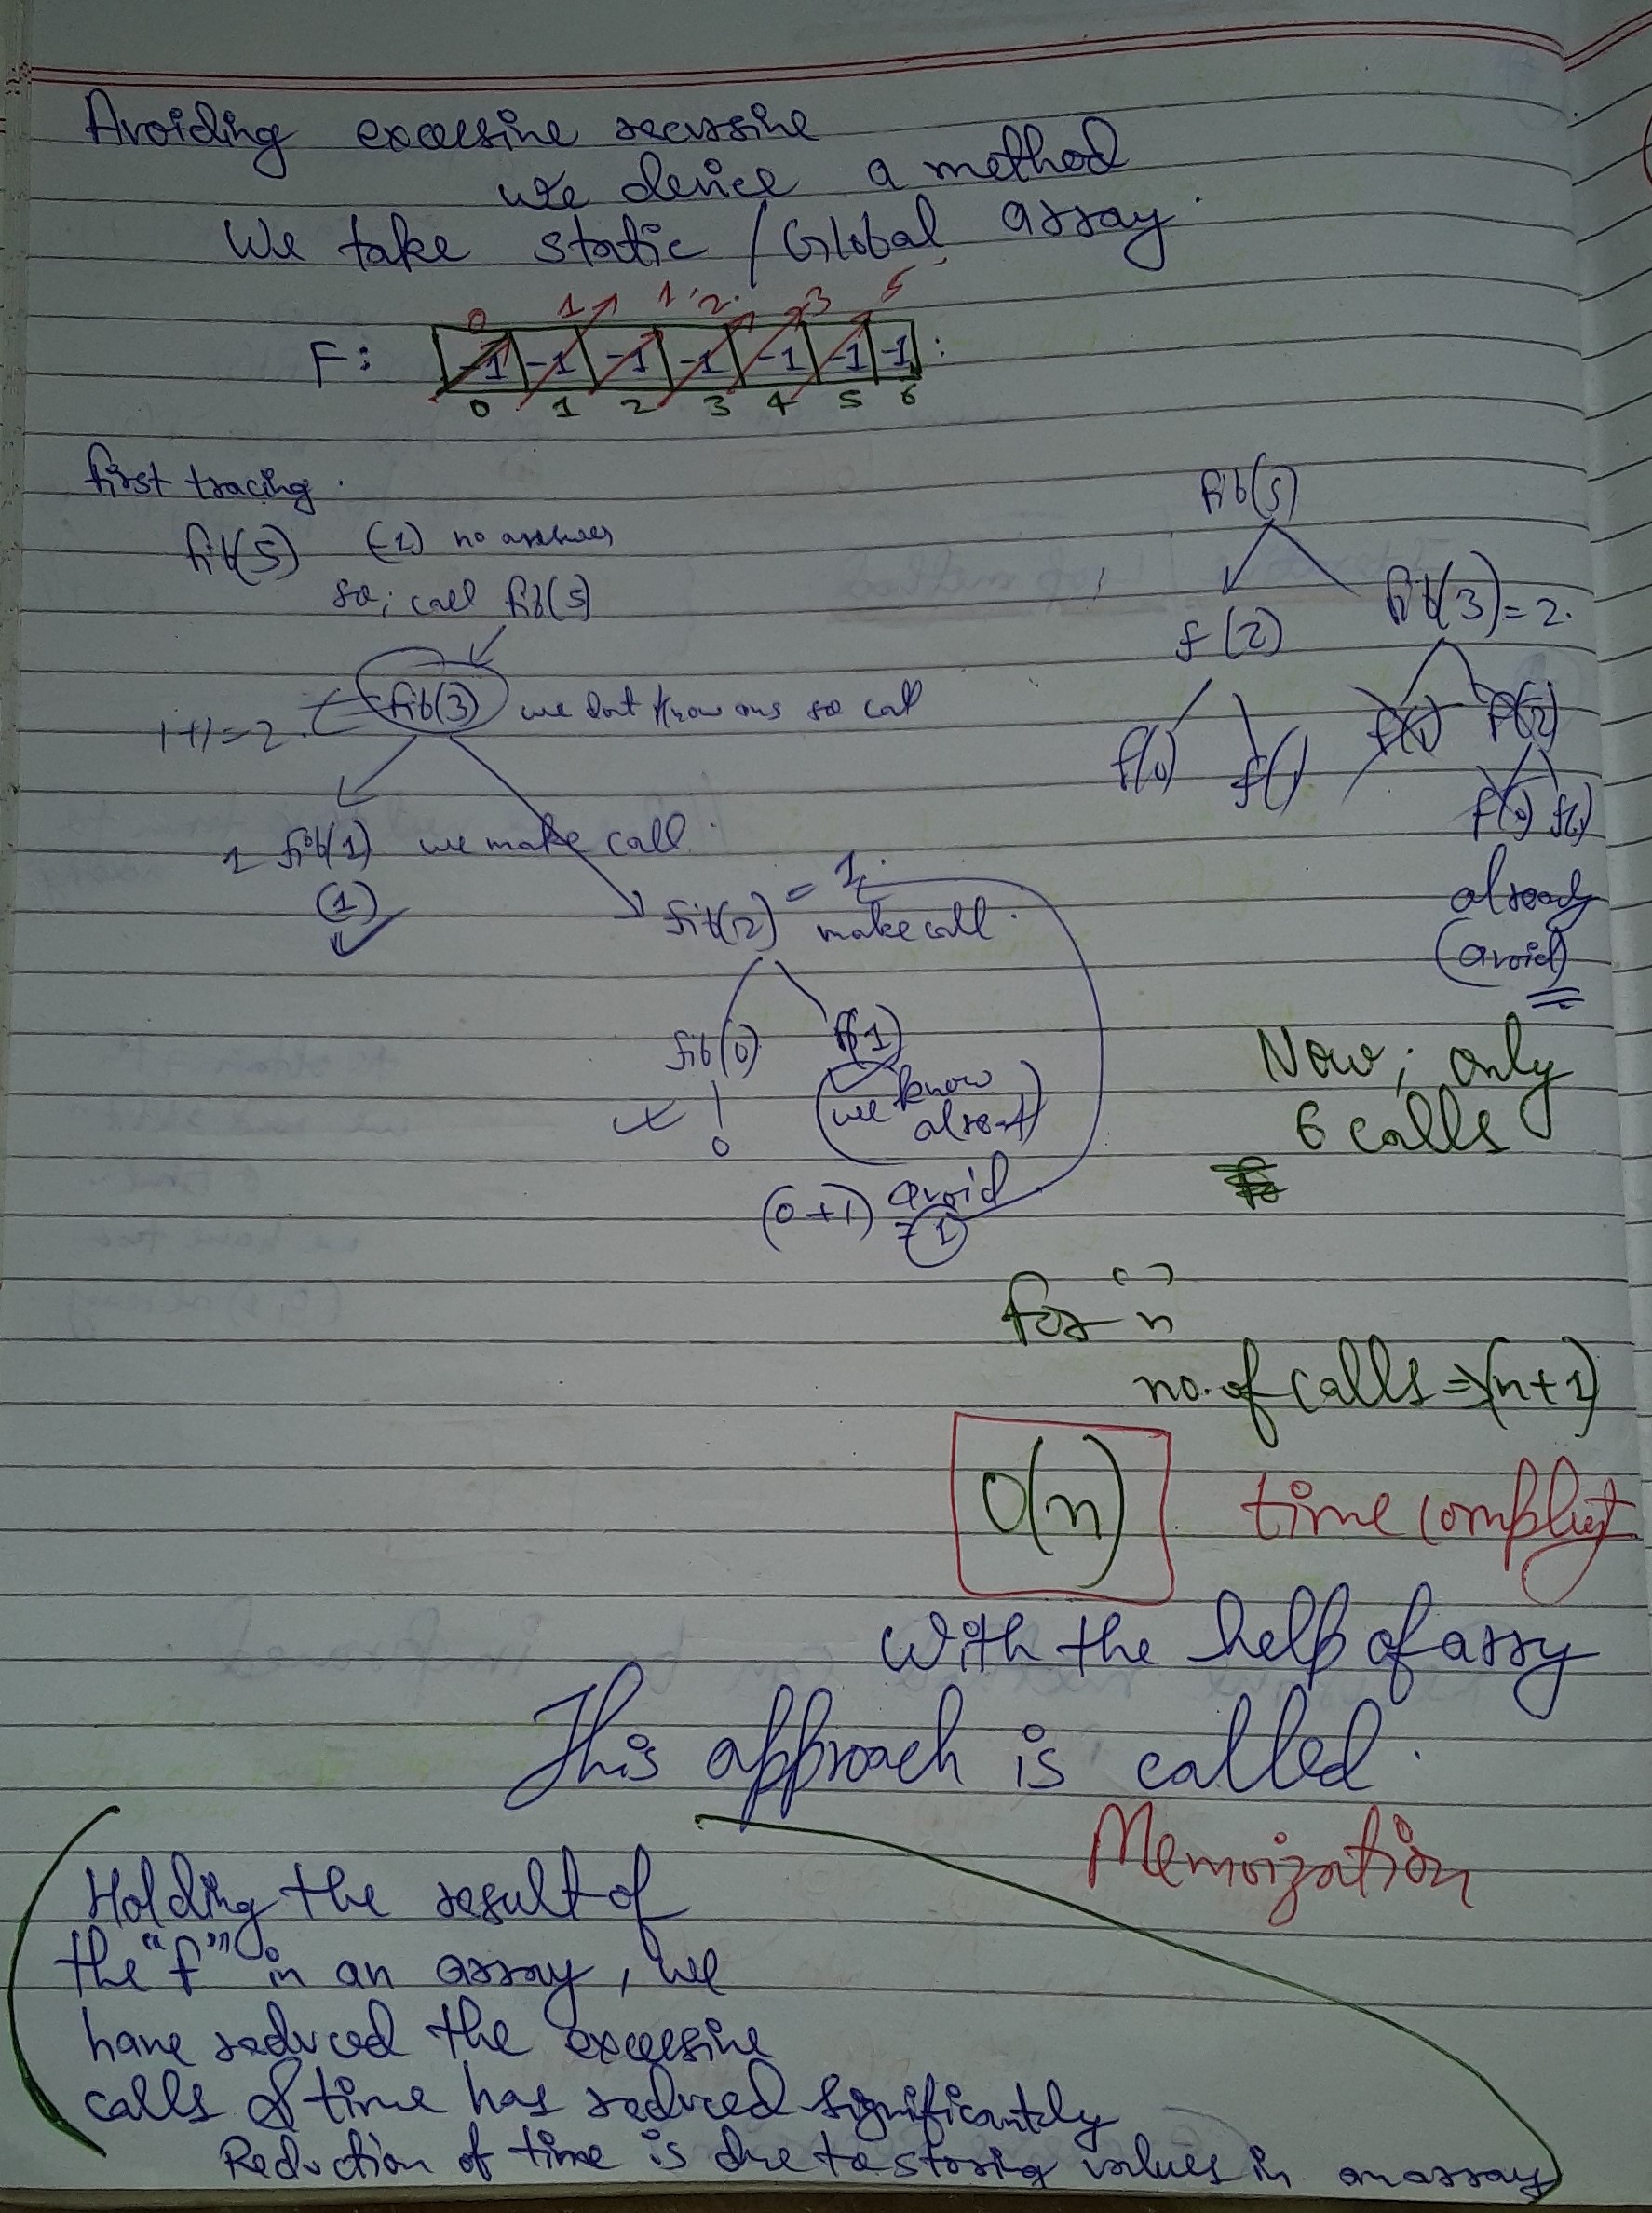 Avoiding excessive recursive
we device a method
We take static / Global array.
0 1 1 2 3 5
F: -1 -1 -1 -1 -1 -1 -1
0 1 2 3 4 5 6
first tracing.
fib(5) (-1) no answer
so; call fib(3)
fib(3) we dont know ans so call
1+1=2
1 fib(1) we make call.
(1)
fib(2) = 1
make call.
fib(0) f(1)
0
(we know
alread)
avoid
(0+1) = 1
fib(5)
f(2) fib(3)=2.
f(0) f(1) f(1) f(2)
f(0) f(1)
already
(avoid)
Now; only
6 calls
for "n"
no. of calls => (n+1)
O(n) time complext
with the help of arry
This approach is called.
Memoization
Holding the result of
the "f" in an array, we
have reduced the excessive
calls & time has reduced significantly
Reduction of time is due to storing values in an array